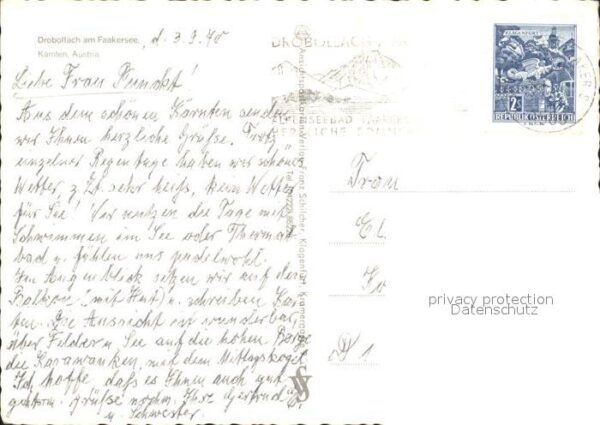 Drobollach am Faakersee,
Kärnten, Austria
d. 3.9.70
Liebe Frau Punckt!
Aus dem schönen Kärnten senden
wir Ihnen herzliche Grüße. Trotz
einzelner Regentage haben wir schönes
Wetter, z. Zt. sehr heiß, kein Wetter
für Sie! Wir nutzen die Tage mit
Schwimmen im See oder Thermal
bad u. fühlen uns pudelwohl.
Im Augenblick sitzen wir auf dem
Balkon (mit Hut) u. schreiben Kar
ten. Die Aussicht ist wunderbar,
über Felder u. See auf die hohen Berge
die Karawanken, mit dem Mittagskogel.
Ich hoffe, daß es Ihnen auch gut
geht. Grüße Ihre Gertrud
u. Schwester.
DROBOLLACH
HERRLICHE
KLAGENFURT
2S
REPUBLIK ÖSTERREICH
Franz Schilcher, Klagenfurt
Frau
El
Go
D 1
privacy protection
Datenschutz